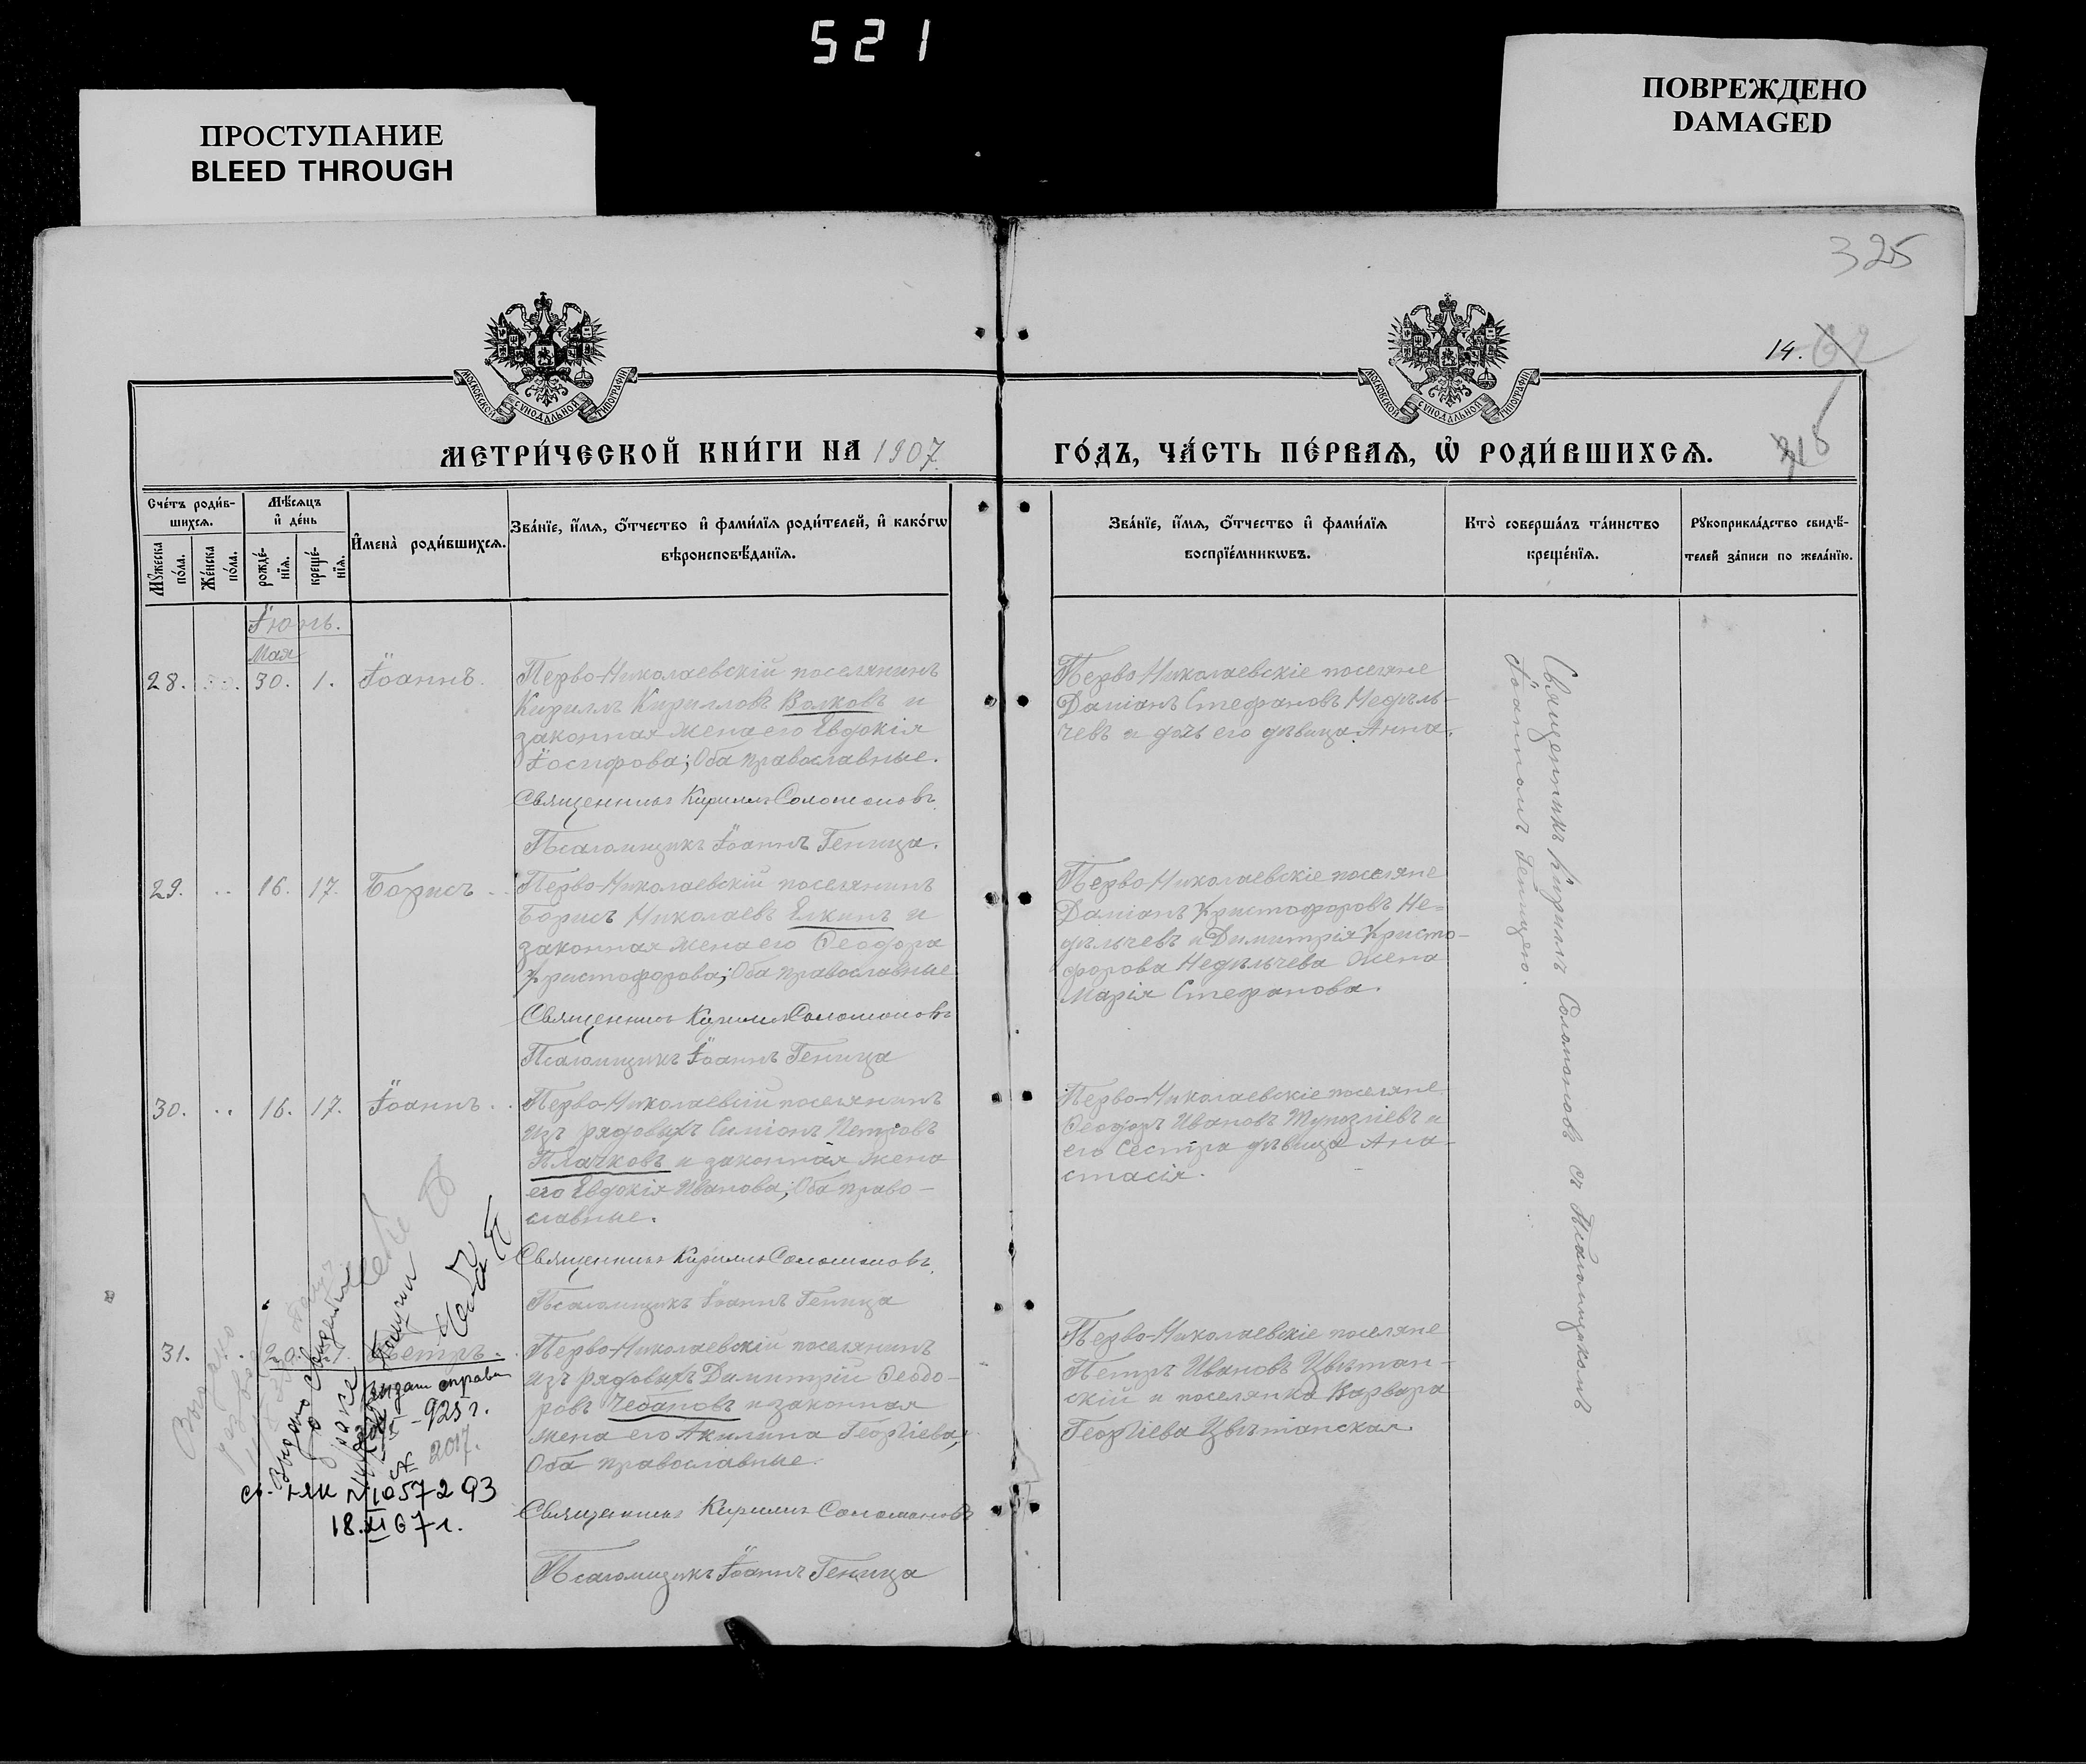 521
ПРОСТУПАНИЕ
BLEED THROUGH
ПОВРЕЖДЕНО
DAMAGED
325
14.
МОСКОВСКОЙ СѴНОДАЛЬНОЙ ТИПОГРАФІИ
МОСКОВСКОЙ СѴНОДАЛЬНОЙ ТИПОГРАФІИ
МЕТРИ́ЧЕСКОЙ КНИ́ГИ НА 1907
ГО́ДЪ, ЧА́СТЬ ПЕ́РВАѦ, Ѡ҆ РОДИ́ВШИХСѦ.
Сче́тъ роди́в-
шихсѧ.
Мꙋ́жеска по́ла.
Же́нска по́ла.
Мѣ́сѧцъ
и҆ де́нь
рожде́-
нїѧ.
креще́-
нїѧ.
И҆мена̀ роди́вшихсѧ.
Зва́нїе, и҆́мѧ, ѻ҆́тчество и҆ фами́лїѧ роди́телей, и҆ како́гѡ
вѣроисповѣ́данїѧ.
Зва́нїе, и҆́мѧ, ѻ҆́тчество и҆ фами́лїѧ
воспрїе́мникѡвъ.
Кто̀ соверша́лъ та́инство
креще́нїѧ.
Рꙋкоприкла́дство свидѣ́-
телей за́писи по жела́нїю.
Іюнь.
Мая
28. 30. 1. Іоаннъ.
Перво-Николаевскій поселянинъ
Кириллъ Кирилловъ Волковъ и
законная жена его Евдокія
Іосифова; Оба православные.
Священникъ Кириллъ Соломоновъ.
Псаломщикъ Іоаннъ Геница.
Перво Николаевскіе поселяне
Даміанъ Стефановъ Недѣль-
чевъ и дочь его дѣвица Анна.
29. .. 16. 17. Борисъ ..
Перво-Николаевскій поселянинъ
Борисъ Николаевъ Елкинъ и
законная жена его Ѳеодора
Христофорова; Оба православные
Священникъ Кириллъ Соломоновъ
Псаломщикъ Іоаннъ Геница
Перво Николаевскіе поселяне
Даміанъ Христофоровъ Не=
дѣльчевъ и Димитрія Христо-
форова Недѣльчева жена
Марія Стефанова.
30. .. 16. 17. Іоаннъ. .
Перво-Николаевскій поселянинъ
изъ рядовыхъ Симіонъ Петровъ
Плачковъ и законная жена
его Евдокія Иванова; Оба право-
славные.
Священникъ Кириллъ Соломоновъ.
Псаломщикъ Іоаннъ Геница
Перво-Николаевскіе поселяне
Ѳеодоръ Ивановъ и
его Сестра дѣвица Ана-
стасія.
31. Петръ.
Перво-Николаевскій поселянинъ
изъ рядовыхъ Димитрій Ѳеодо-
ровъ Чебановъ и законная
жена его Акилина Георгіева,
Оба православные.
Священникъ Кириллъ Соломоновъ
Псаломщикъ Іоаннъ Геница
Перво-Николаевскіе поселяне
Петръ Ивановъ Цвѣтан-
скій и поселянка Варвара
Георгіева Цвѣтанская.
Священникъ Кириллъ Соломоновъ съ Псаломщикомъ
Іоанномъ Геницею.
Выдано
925 г.
2017.
1057293
18.XI 67 г.